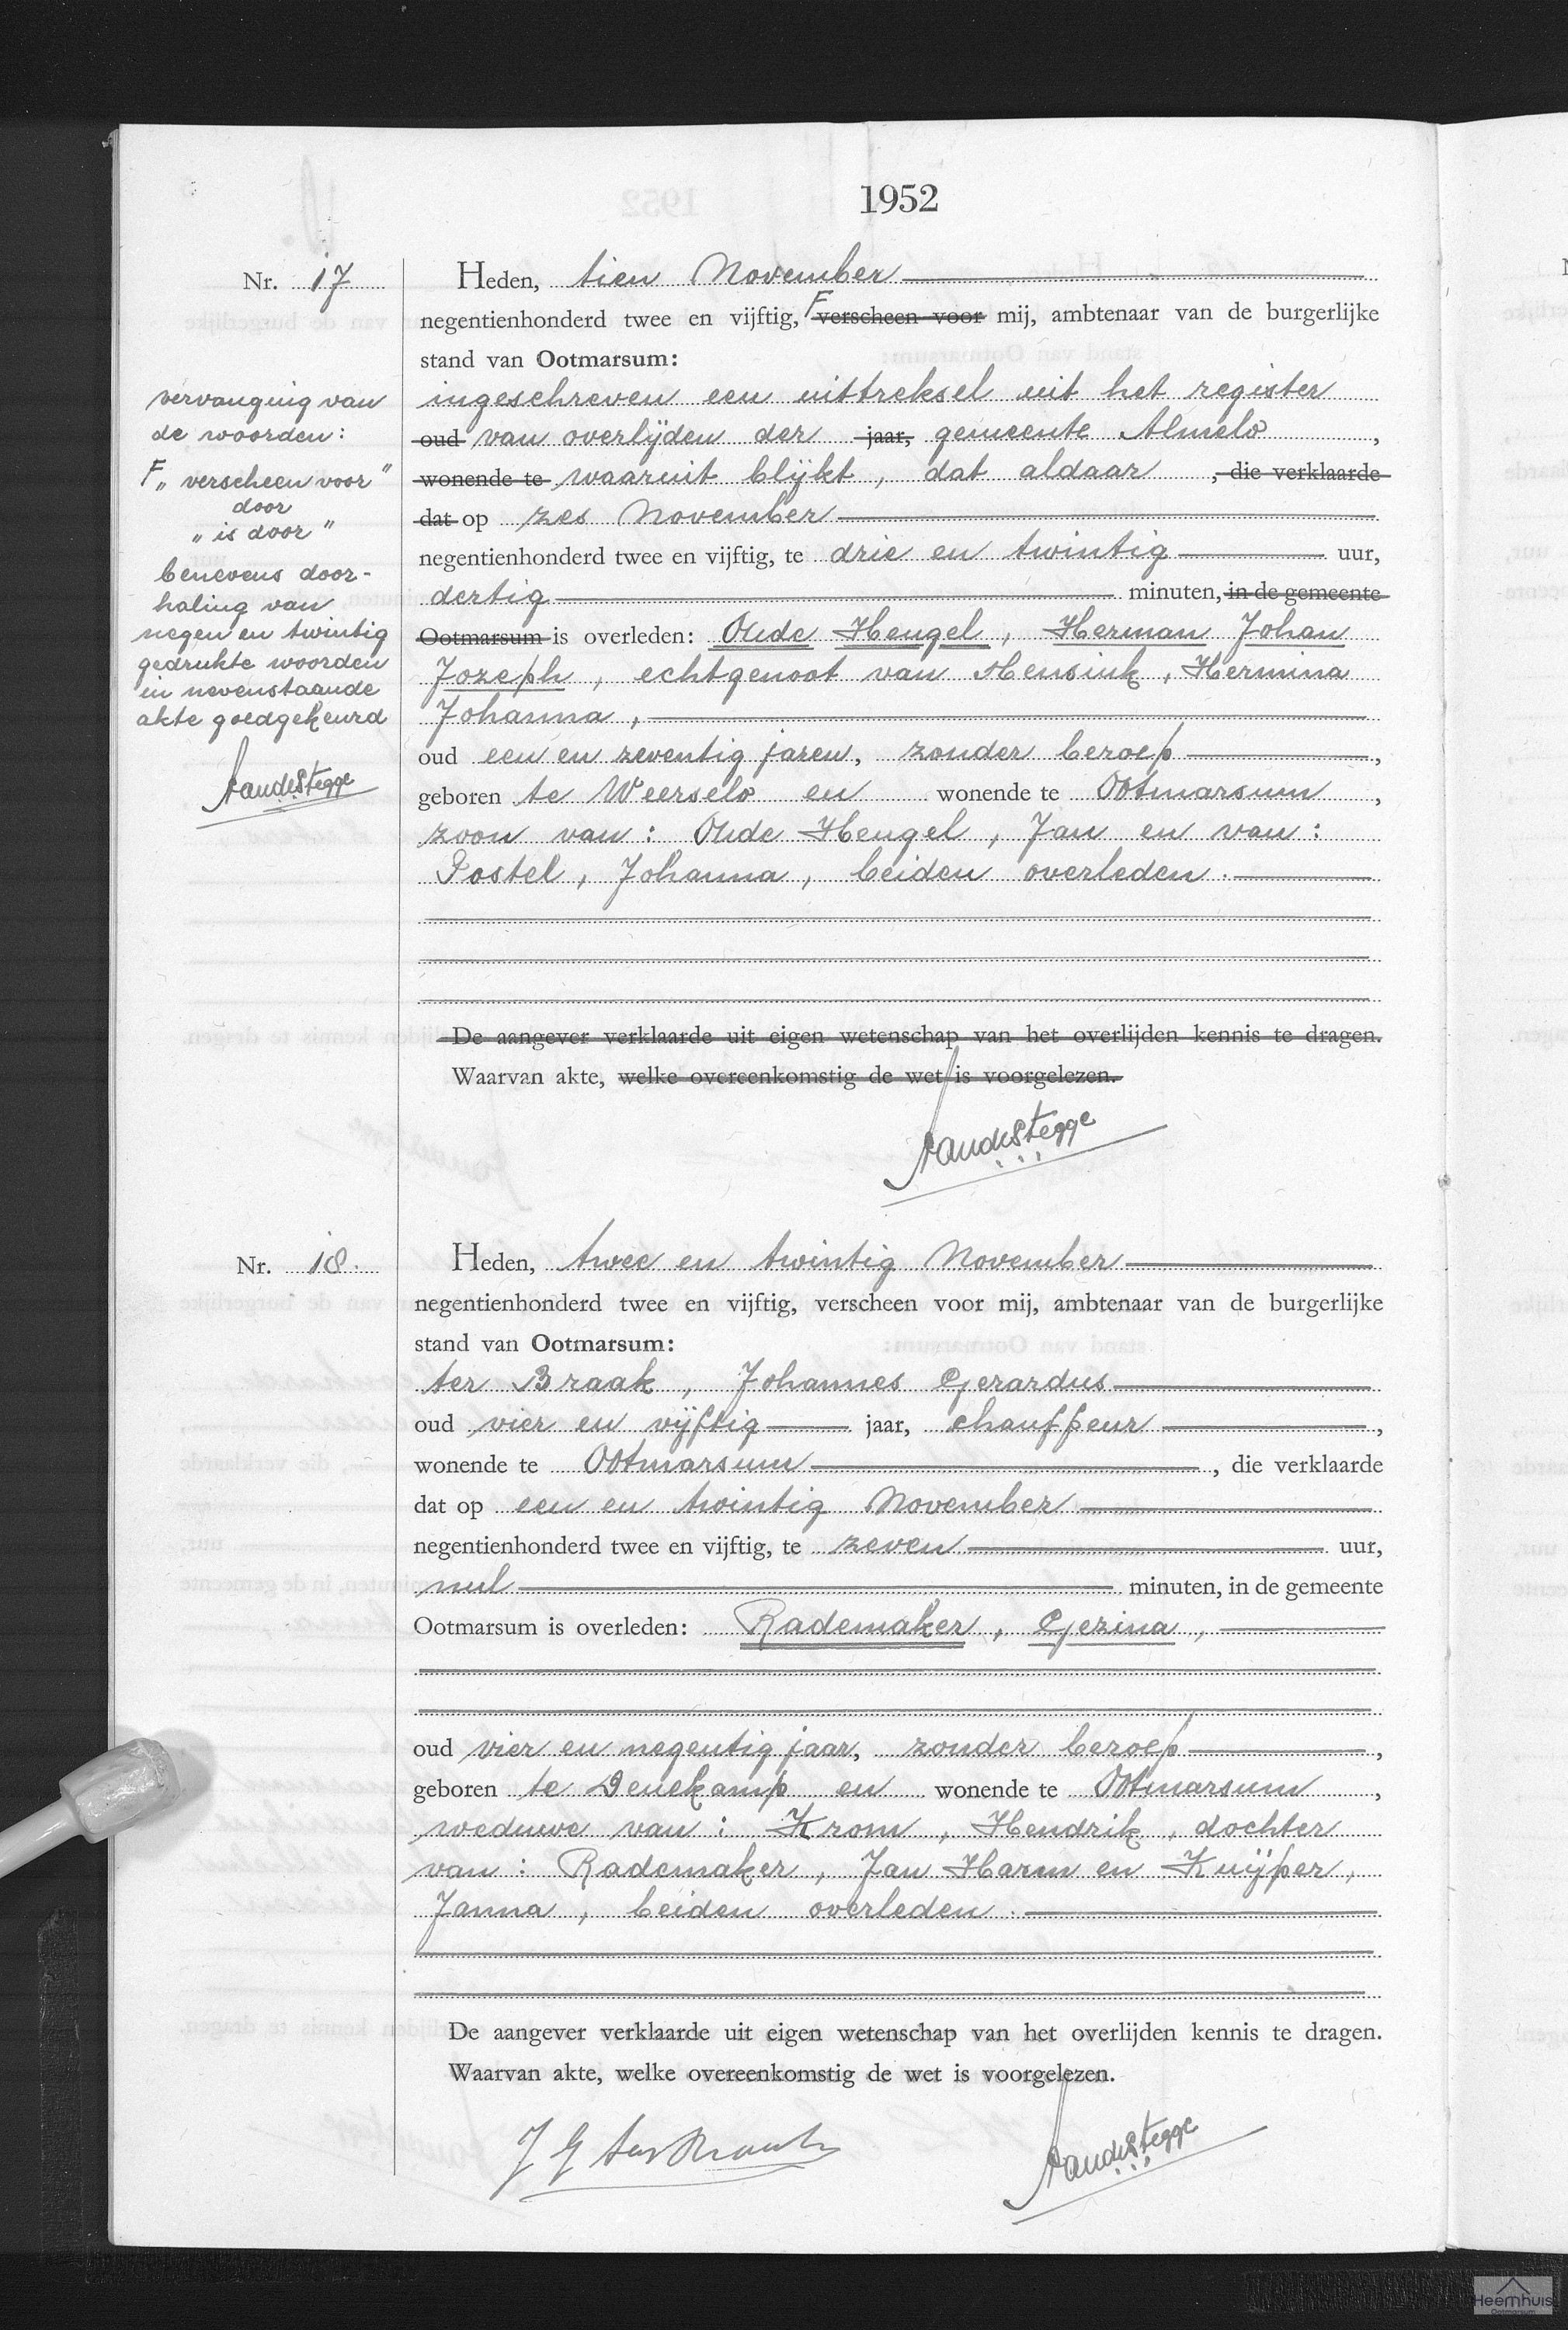 1952
Nr. 17
Heden, tien November
negentienhonderd twee en vijftig, F verscheen voor mij, ambtenaar van de burgerlijke
stand van Ootmarsum:
ingeschreven een uittreksel uit het register
oud van overlijden der jaar, gemeente Almelo ,
wonende te waaruit blijkt, dat aldaar , die verklaarde
dat op zes November
negentienhonderd twee en vijftig, te drie en twintig uur,
dertig minuten, in de gemeente
Ootmarsum is overleden: Olde Hengel, Herman Johan
Jozeph, echtgenoot van Mensink, Hermina
Johanna,
oud een en zeventig jaren, zonder beroep ,
geboren te Weerselo en wonende te Ootmarsum ,
zoon van: Olde Hengel, Jan en van:
Postel, Johanna, beiden overleden.
De aangever verklaarde uit eigen wetenschap van het overlijden kennis te dragen.
Waarvan akte, welke overeenkomstig de wet is voorgelezen.
vervanging van
de woorden:
F „verscheen voor"
door
„is door"
benevens door-
haling van
negen en twintig
gedrukte woorden
in nevenstaande
akte goedgekeurd
Nr. 18.
Heden, twee en twintig November
negentienhonderd twee en vijftig, verscheen voor mij, ambtenaar van de burgerlijke
stand van Ootmarsum:
ter Braak, Johannes Gerardus
oud vier en vijftig jaar, chauffeur ,
wonende te Ootmarsum , die verklaarde
dat op een en twintig November
negentienhonderd twee en vijftig, te zeven uur,
nul minuten, in de gemeente
Ootmarsum is overleden: Rademaker, Gezina,
oud vier en negentig jaar, zonder beroep ,
geboren te Denekamp en wonende te Ootmarsum ,
weduwe van: Krom, Hendrik, dochter
van: Rademaker, Jan Harm en Kuijper,
Janna, beiden overleden.
De aangever verklaarde uit eigen wetenschap van het overlijden kennis te dragen.
Waarvan akte, welke overeenkomstig de wet is voorgelezen.
J G ter Braak
Heemhuis
Ootmarsum